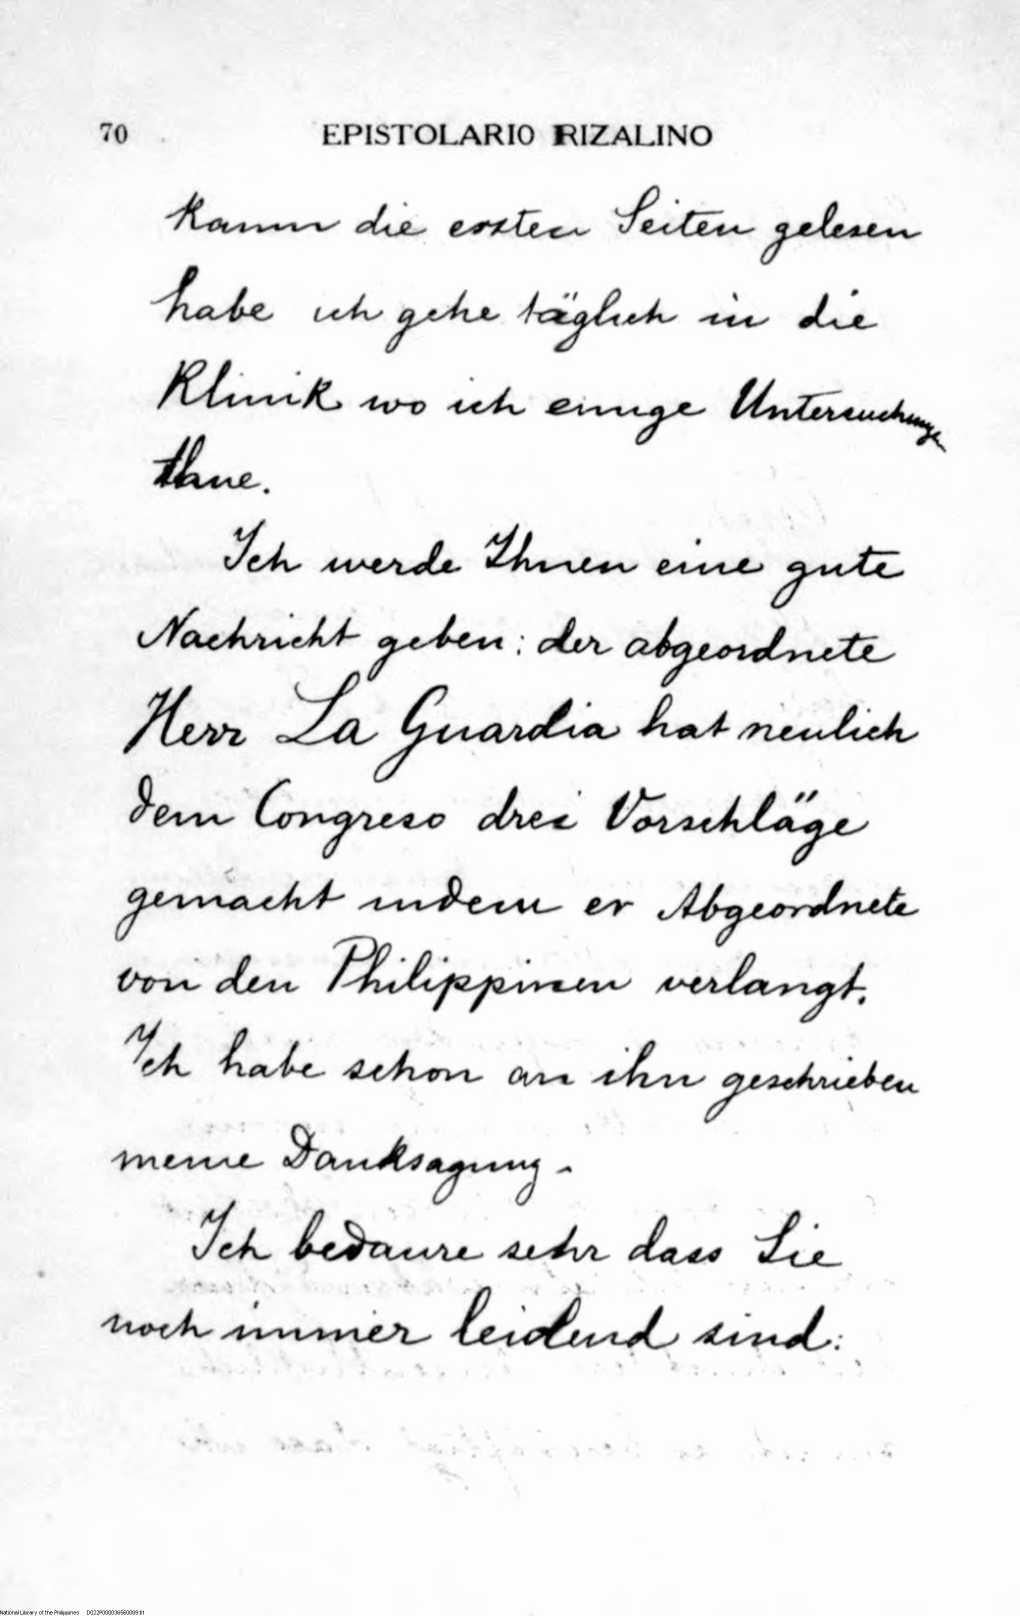 70 EPISTOLARIO RIZALINO
kaum die ersten Seiten gelesen
habe ich gehe täglich in die
Klinik wo ich einige Untersuchungen
thue.
Ich werde Ihnen eine gute
Nachricht geben: der abgeordnete
Herr La Guardia hat neulich
dem Congreso drei Vorschläge
gemacht indem er Abgeordnete
von den Philippinen verlangt.
Ich habe schon an ihn geschrieben
meine Danksagung.
Ich bedaure sehr dass Sie
noch immer leidend sind:
National Library of the Philippines